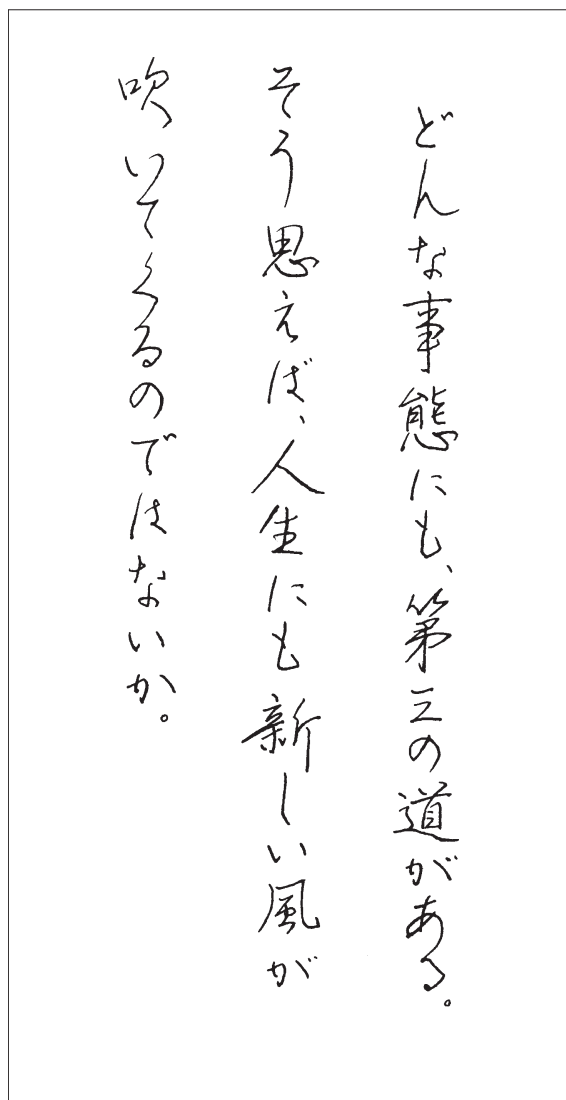 どんな事態にも、第三の道がある。
そう思えば、人生にも新しい風が
吹いてくるのではないか。